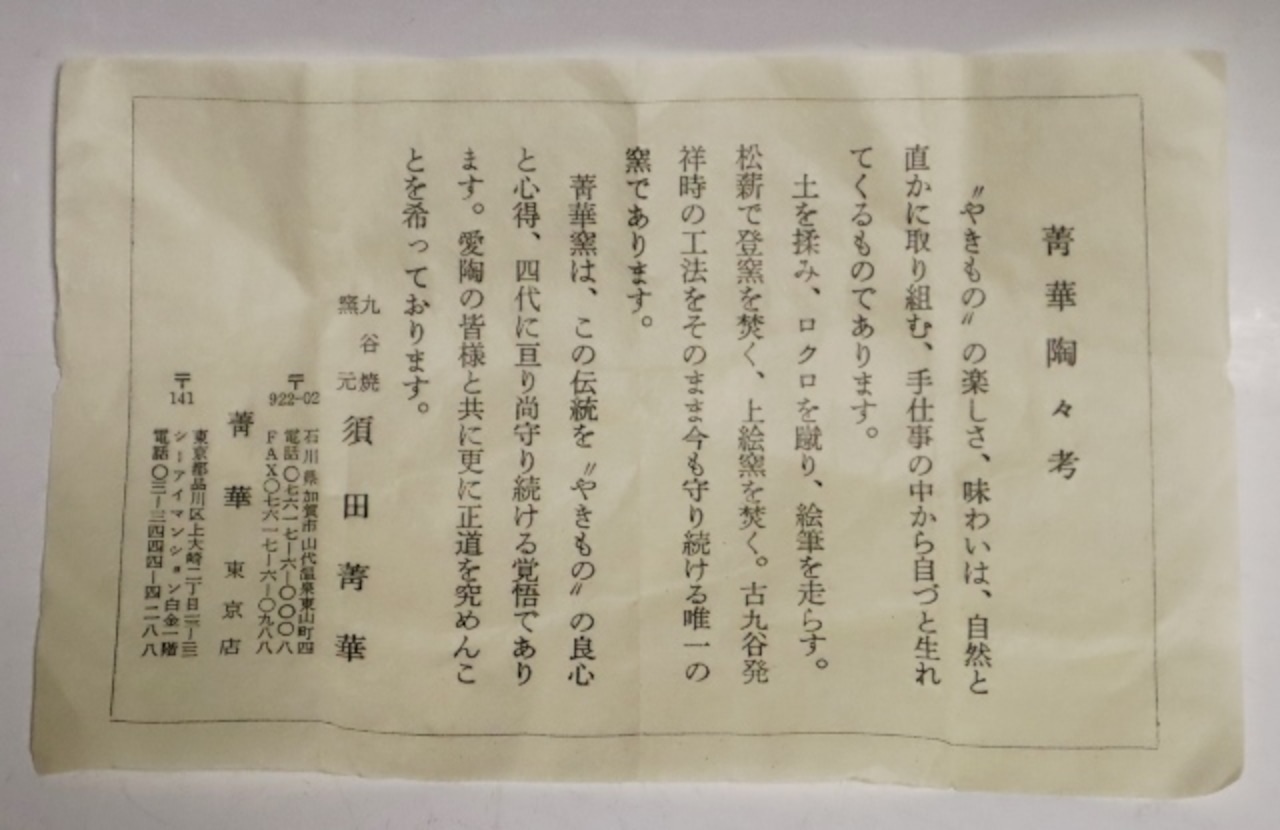 菁華陶々考
〝やきもの〟の楽しさ、味わいは、自然と
直かに取り組む、手仕事の中から自づと生れ
てくるものであります。
土を揉み、ロクロを蹴り、絵筆を走らす。
松薪で登窯を焚く、上絵窯を焚く。古九谷発
祥時の工法をそのまま今も守り続ける唯一の
窯であります。
菁華窯は、この伝統を〝やきもの〟の良心
と心得、四代に亘り尚守り続ける覚悟であり
ます。愛陶の皆様と共に更に正道を究めんこ
とを希っております。
九谷焼
窯元
須田菁華
〒922-02
石川県加賀市山代温泉東山町四
電話〇七六一七―六―〇〇〇八
FAX〇七六一七―六―〇九八八
菁華東京店
〒141
東京都品川区上大崎二丁目
シーアイマンション白金一階
電話〇三―三四四四―四二八八